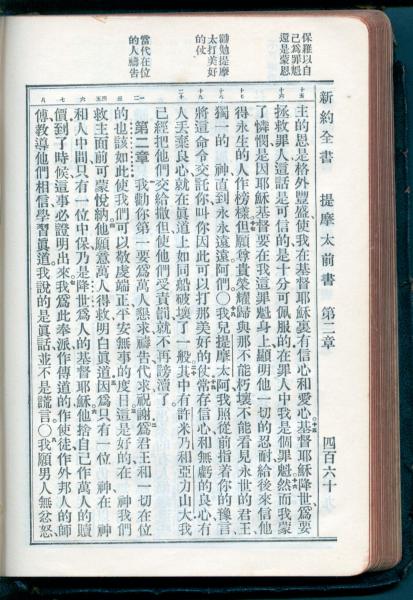 保羅以自
己爲罪魁
還是蒙恩
勸勉提摩
太打美好
的仗
當代在位
的人禱告
新約全書 提摩太前書 第二章 四百六十
主的恩是格外豐盛使我在基督耶穌裏有信心和愛心基督耶穌降世爲要
拯救罪人這話是可信的是十分可佩服的在罪人中我是個罪魁然而我蒙
了憐憫是因耶穌基督要在我這罪魁身上顯明他一切的忍耐給後來信他
得永生的人作榜樣但願尊貴榮耀歸與那不能朽壞不能看見永世的君王
獨一的 神直到永永遠遠阿們〇我兒提摩太阿我照從前指着你的豫言
將這命令交託你叫你因此可以打那美好的仗常存信心和無虧的良心有
人丟棄良心就在眞道上如同船破壞了一般其中有許米乃和亞力山大我
已經把他們交給撒但使他們受責罰就不再謗瀆了
第二章 我勸你第一要爲萬人懇求禱告代求祝謝爲君王和一切在位
的也該如此使我們可以敬虔端正平安無事的度日這是好的在 神我們
救主面前可蒙悅納他願意萬人得救明白眞道因爲只有一位 神在 神
和人中間只有一位中保乃是降世爲人的基督耶穌他捨自己作萬人的贖
價到了時候這事必證明出來我爲此奉派作傳道的作使徒作外邦人的師
傅教導他們相信學習眞道我說的是眞話並不是謊言〇我願男人無忿怒